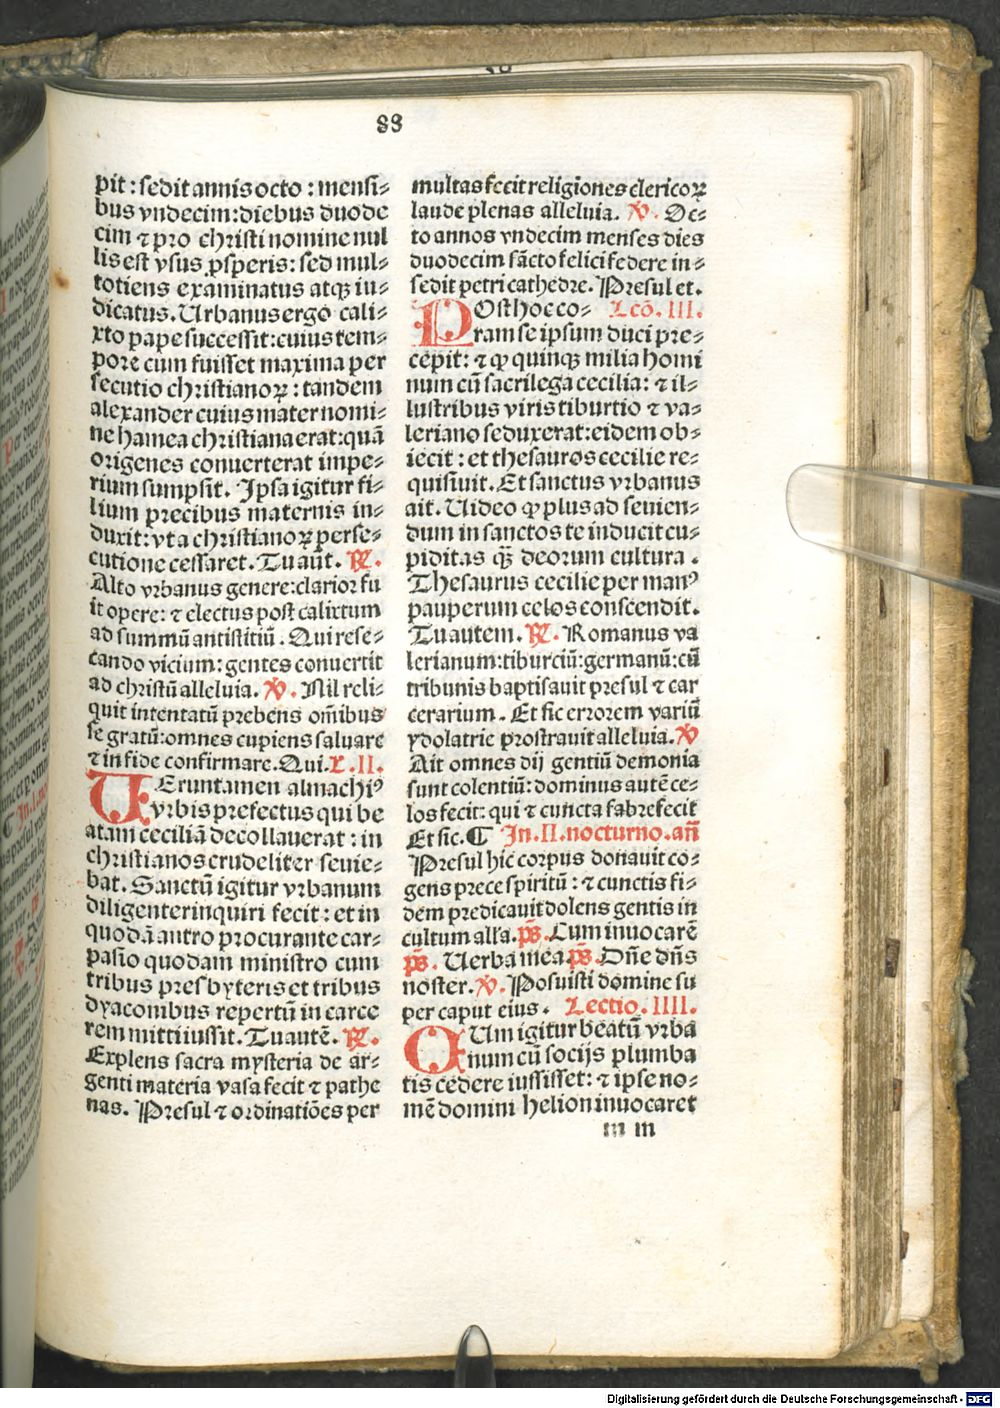 88
pit : sedit annis octo : mensi⸗
bus vndecim: diebus duode
cim ⁊ pro christi nomine nul
lis est vsus ꝓsperis: sed mul⸗
totiens examinatus atqꝫ iu⸗
dicatus. Urbanus ergo cali⸗
xto pape successit: cuius tem⸗
pore cum fuisset maxima per
secutio christianoꝝ : tandem
alexander cuius mater nomi⸗
ne hamea christiana erat: quā
origenes conuerterat impe⸗
rium sumpsit. Ipsa igitur fi⸗
lium precibus maternis in⸗
duxit: vt a christianoꝝ perse⸗
cutione cessaret. Tu aūt. ℟.
Alto vrbanus genere: clarior fu
it opere: ⁊ electus post calixtum
ad summū antistitiū . Qui rese⸗
cando vicium: gentes conuertit
ad christū alleluia. ℣. Nil reli⸗
quit intentatū prebens om̄ibus
se gratū: omnes cupiens saluare
⁊ in fide confirmare. Qui. L. II.
UEruntamen almachiꝰ
vrbis prefectus qui be
atam ceciliā decollauerat : in
christianos crudeliter seuie⸗
bat. Sanctū igitur vrbanum
diligenter inquiri fecit : et in
quodā antro procurante car⸗
pasio quodam ministro cum
tribus presbyteris et tribus
dyaconibus repertū in carce
rem mitti iussit. Tu autē. ℟.
Explens sacra mysteria de ar⸗
genti materia vasa fecit ⁊ pathe
nas. Presul ⁊ ordinatiōes per
multas fecit religiones clericoꝝ
laude plenas alleluia. ℣. Oc⸗
to annos vndecim menses dies
duodecim sācto felici federe in⸗
sedit petri cathedre. Presul et.
POst hoc co⸗ Lcō. III.
ram se ipsum duci pre⸗
cepit: ⁊ ꝙ quinqꝫ milia homi
num cū sacrilega cecilia: ⁊ il⸗
lustribus viris tiburtio ⁊ va⸗
leriano seduxerat: eidem ob⸗
iecit : et thesauros cecilie re⸗
quisiuit. Et sanctus vrbanus
ait. Uideo ꝙ plus ad seuien⸗
dum in sanctos te inducit cu⸗
piditas qꝫ̄ deorum cultura .
Thesaurus cecilie per manꝰ
pauperum celos conscendit.
Tu autem. ℟. Romanus va
lerianum: tiburciū: germanū: cū
tribunis baptisauit presul ⁊ car
cerarium. Et sic errorem variū
ydolatrie prostrauit alleluia. ℣
Ait omnes dij gentiū demonia
sunt colentiū: dominus autē ce⸗
los fecit: qui ⁊ cuncta fabrefecit
Et sic. ¶ In. II. nocturno. an̄
Presul hic corpus donauit co⸗
gens prece spiritū : ⁊ cunctis fi⸗
dem predicauit dolens gentis in
cultum all'a. ps̄. Cum inuocarē
ps̄. Uerba mea ps̄. Dn̄e dn̄s
noster. ℣. Posuisti domine su
per caput eius. Lectio. IIII.
CUm igitur beatū vrba
num cū socijs plumba
tis cedere iussisset: ⁊ ipse no⸗
mē domini helion inuocaret
m m
Digitalisierung gefördert durch die Deutsche Forschungsgemeinschaft - DFG